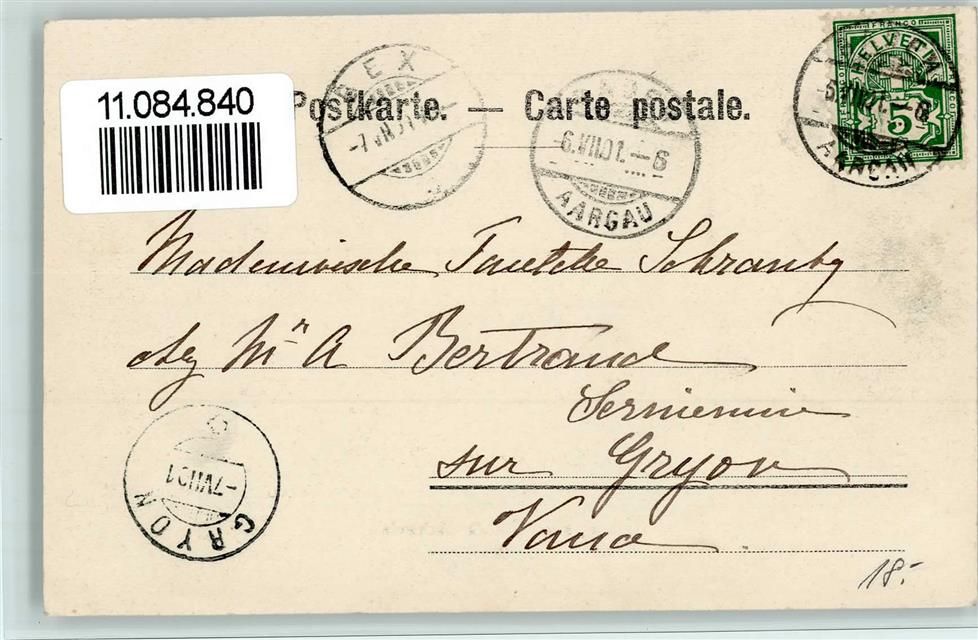 11.084.840
Postkarte. — Carte postale.
BEX
-7.VII.01
6.VII.01.-6
AARGAU
FRANCO
HELVETIA
5
6.VII.01.-6
AARGAU
Mademoiselle
chez Mr A Bertrand
sur Gryon
Vaud
GRYON
-7.VII.01
18.-